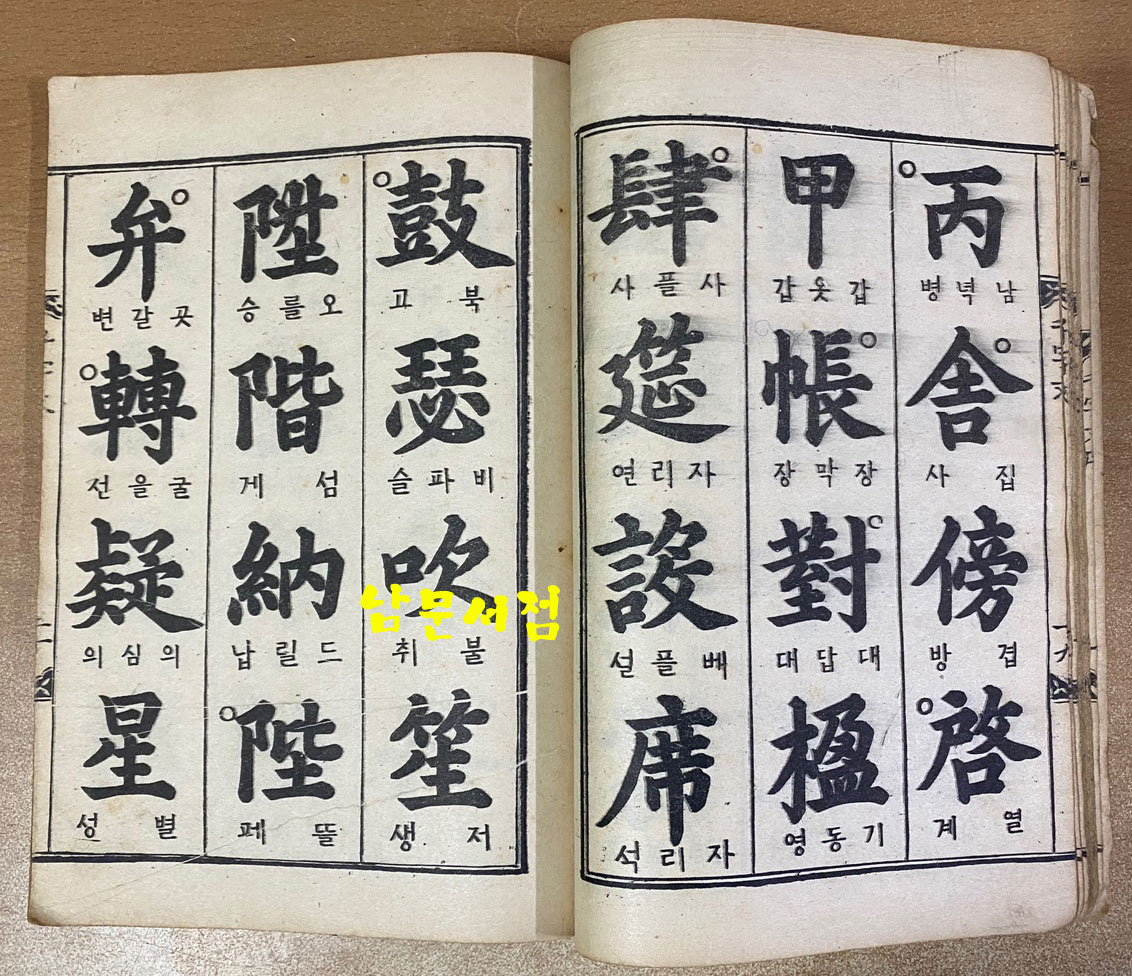 丙
남녁병
舍
집사
傍
겹방
啓
열계
甲
갑옷갑
帳
장막장
對
대답대
楹
기동영
肆
사플사
筵
자리연
設
베플설
席
자리석
鼓
북고
瑟
비파슬
吹
불취
笙
저생
陞
오를승
階
섬게
納
드릴납
陛
뜰페
弁
곳갈변
轉
굴을선
疑
의심의
星
별성
千字文
十九
남문서점